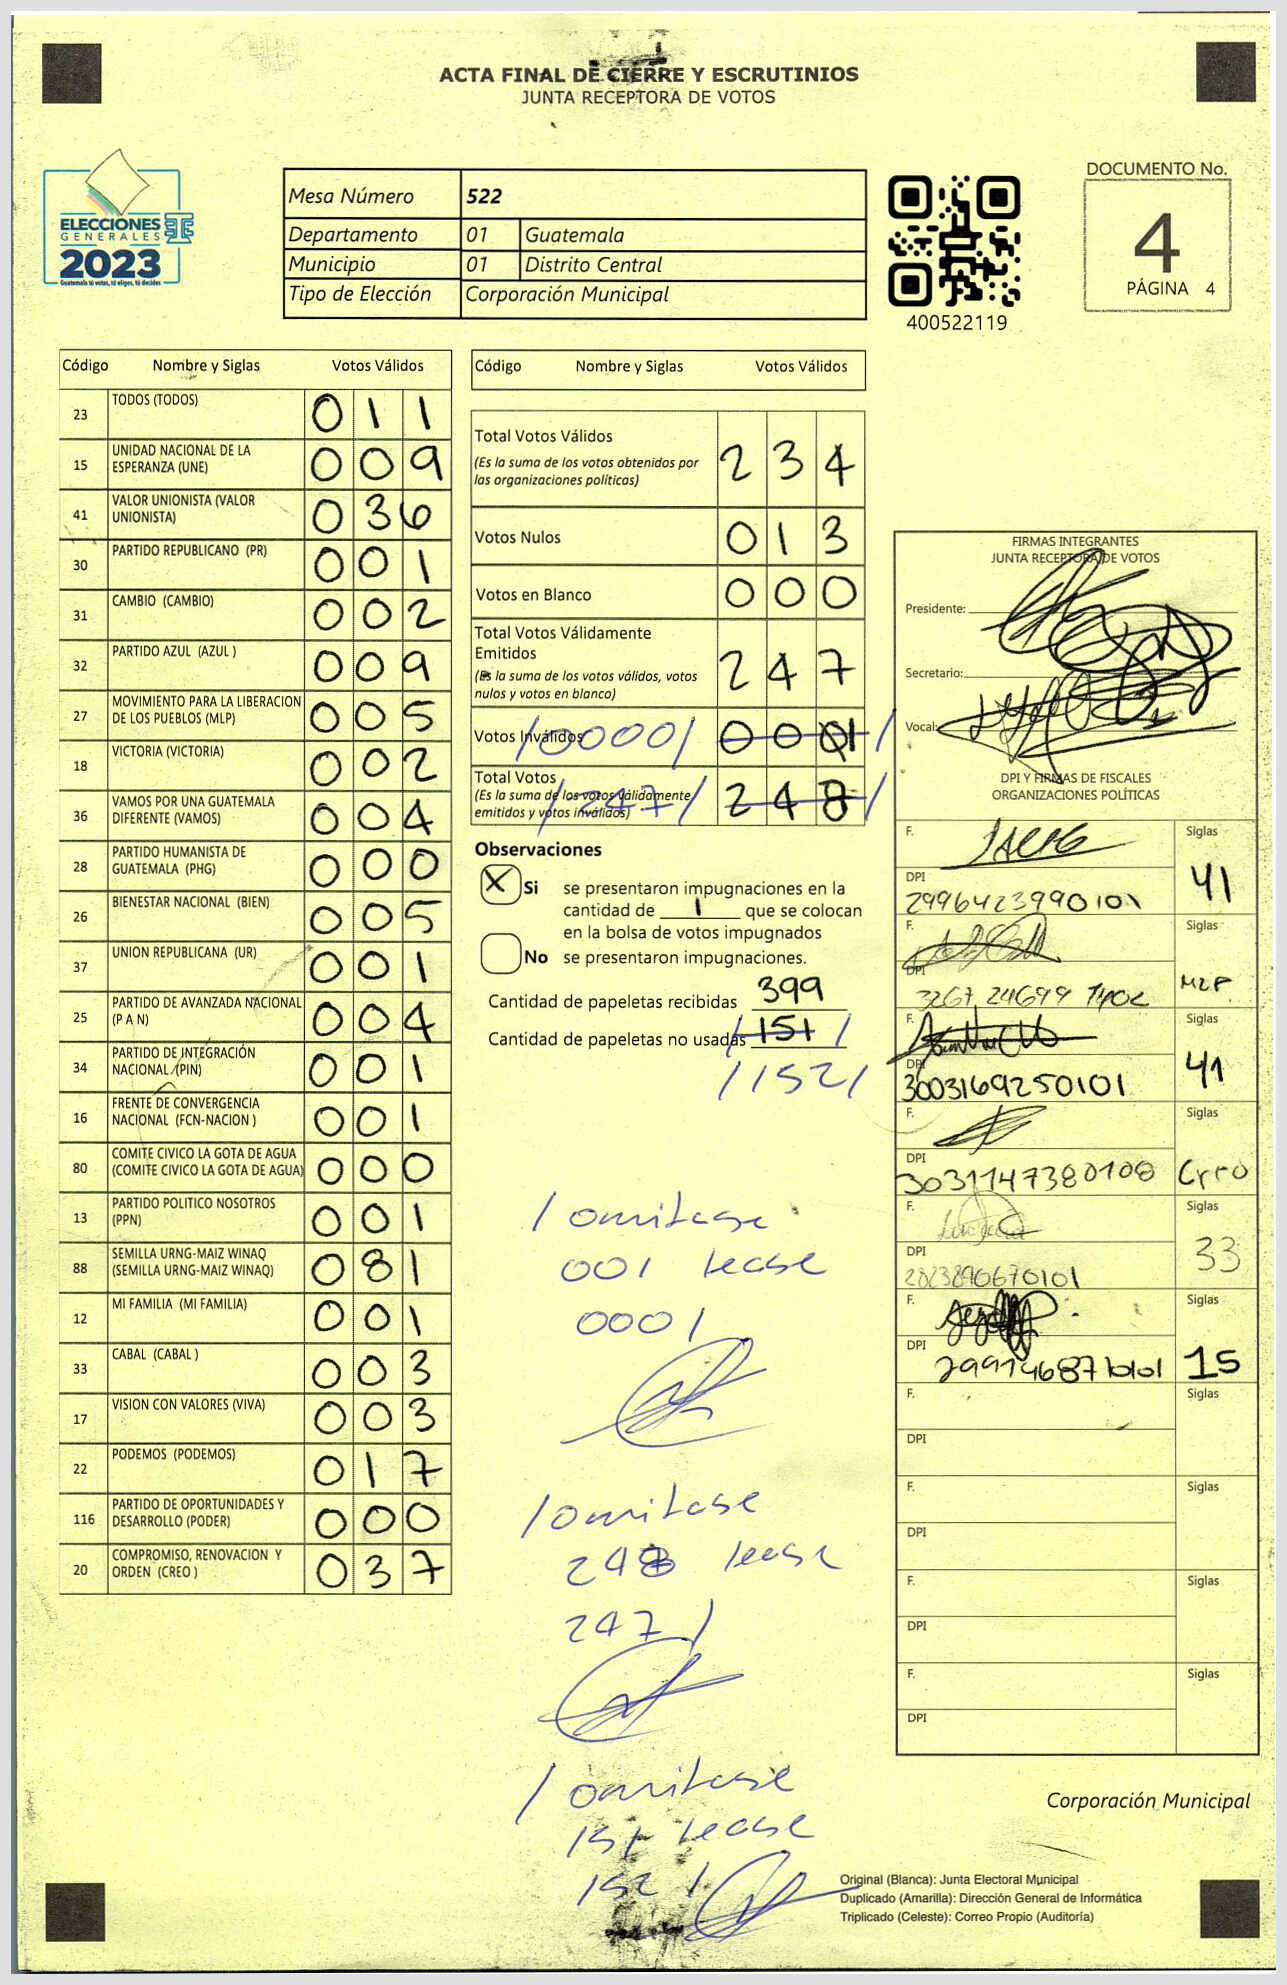 ACTA FINAL DE CIERRE Y ESCRUTINIOS
JUNTA RECEPTORA DE VOTOS
ELECCIONES
GENERALES
2023
Guatemala tú votas, tú eliges, tú decides
Mesa Número 522
Departamento 01 Guatemala
Municipio 01 Distrito Central
Tipo de Elección Corporación Municipal
400522119
DOCUMENTO No.
4
PÁGINA 4
Código Nombre y Siglas Votos Válidos
23 TODOS (TODOS) 0 1 1
15 UNIDAD NACIONAL DE LA ESPERANZA (UNE) 0 0 9
41 VALOR UNIONISTA (VALOR UNIONISTA) 0 3 6
30 PARTIDO REPUBLICANO (PR) 0 0 1
31 CAMBIO (CAMBIO) 0 0 2
32 PARTIDO AZUL (AZUL ) 0 0 9
27 MOVIMIENTO PARA LA LIBERACION DE LOS PUEBLOS (MLP) 0 0 5
18 VICTORIA (VICTORIA) 0 0 2
36 VAMOS POR UNA GUATEMALA DIFERENTE (VAMOS) 0 0 4
28 PARTIDO HUMANISTA DE GUATEMALA (PHG) 0 0 0
26 BIENESTAR NACIONAL (BIEN) 0 0 5
37 UNION REPUBLICANA (UR) 0 0 1
25 PARTIDO DE AVANZADA NACIONAL (P A N) 0 0 4
34 PARTIDO DE INTEGRACIÓN NACIONAL (PIN) 0 0 1
16 FRENTE DE CONVERGENCIA NACIONAL (FCN-NACION ) 0 0 1
80 COMITE CIVICO LA GOTA DE AGUA (COMITE CIVICO LA GOTA DE AGUA) 0 0 0
13 PARTIDO POLITICO NOSOTROS (PPN) 0 0 1
88 SEMILLA URNG-MAIZ WINAQ (SEMILLA URNG-MAIZ WINAQ) 0 8 1
12 MI FAMILIA (MI FAMILIA) 0 0 1
33 CABAL (CABAL ) 0 0 3
17 VISION CON VALORES (VIVA) 0 0 3
22 PODEMOS (PODEMOS) 0 1 7
116 PARTIDO DE OPORTUNIDADES Y DESARROLLO (PODER) 0 0 0
20 COMPROMISO, RENOVACION Y ORDEN (CREO ) 0 3 7
Código Nombre y Siglas Votos Válidos
Total Votos Válidos 2 3 4
(Es la suma de los votos obtenidos por
las organizaciones políticas)
Votos Nulos 0 1 3
Votos en Blanco 0 0 0
Total Votos Válidamente
Emitidos 2 4 7
(Es la suma de los votos válidos, votos
nulos y votos en blanco)
Votos Inválidos /0000/ 0 0 01 /
Total Votos
(Es la suma de los votos válidamente
emitidos y votos inválidos) /247/ 2 4 8 /
Observaciones
X Si se presentaron impugnaciones en la
cantidad de 1 que se colocan
en la bolsa de votos impugnados
No se presentaron impugnaciones.
Cantidad de papeletas recibidas 399
Cantidad de papeletas no usadas /151/
/152/
/ omitase
001 lease
0001
/ omitase
248 lease
247/
/ omitase
151 lease
152/
FIRMAS INTEGRANTES
JUNTA RECEPTORA DE VOTOS
Presidente:
Secretario:
Vocal:
DPI Y FIRMAS DE FISCALES
ORGANIZACIONES POLÍTICAS
F. Siglas
DPI 2996423990101 41
F. Siglas
DPI MLP
F. Siglas
DPI 3003169250101 41
F. Siglas
DPI 3031147380108
F. Siglas
DPI 2823890670101 33
F. Siglas
DPI 15
F. Siglas
DPI
F. Siglas
DPI
F. Siglas
DPI
F. Siglas
DPI
Corporación Municipal
Original (Blanca): Junta Electoral Municipal
Duplicado (Amarilla): Dirección General de Informática
Triplicado (Celeste): Correo Propio (Auditoría)